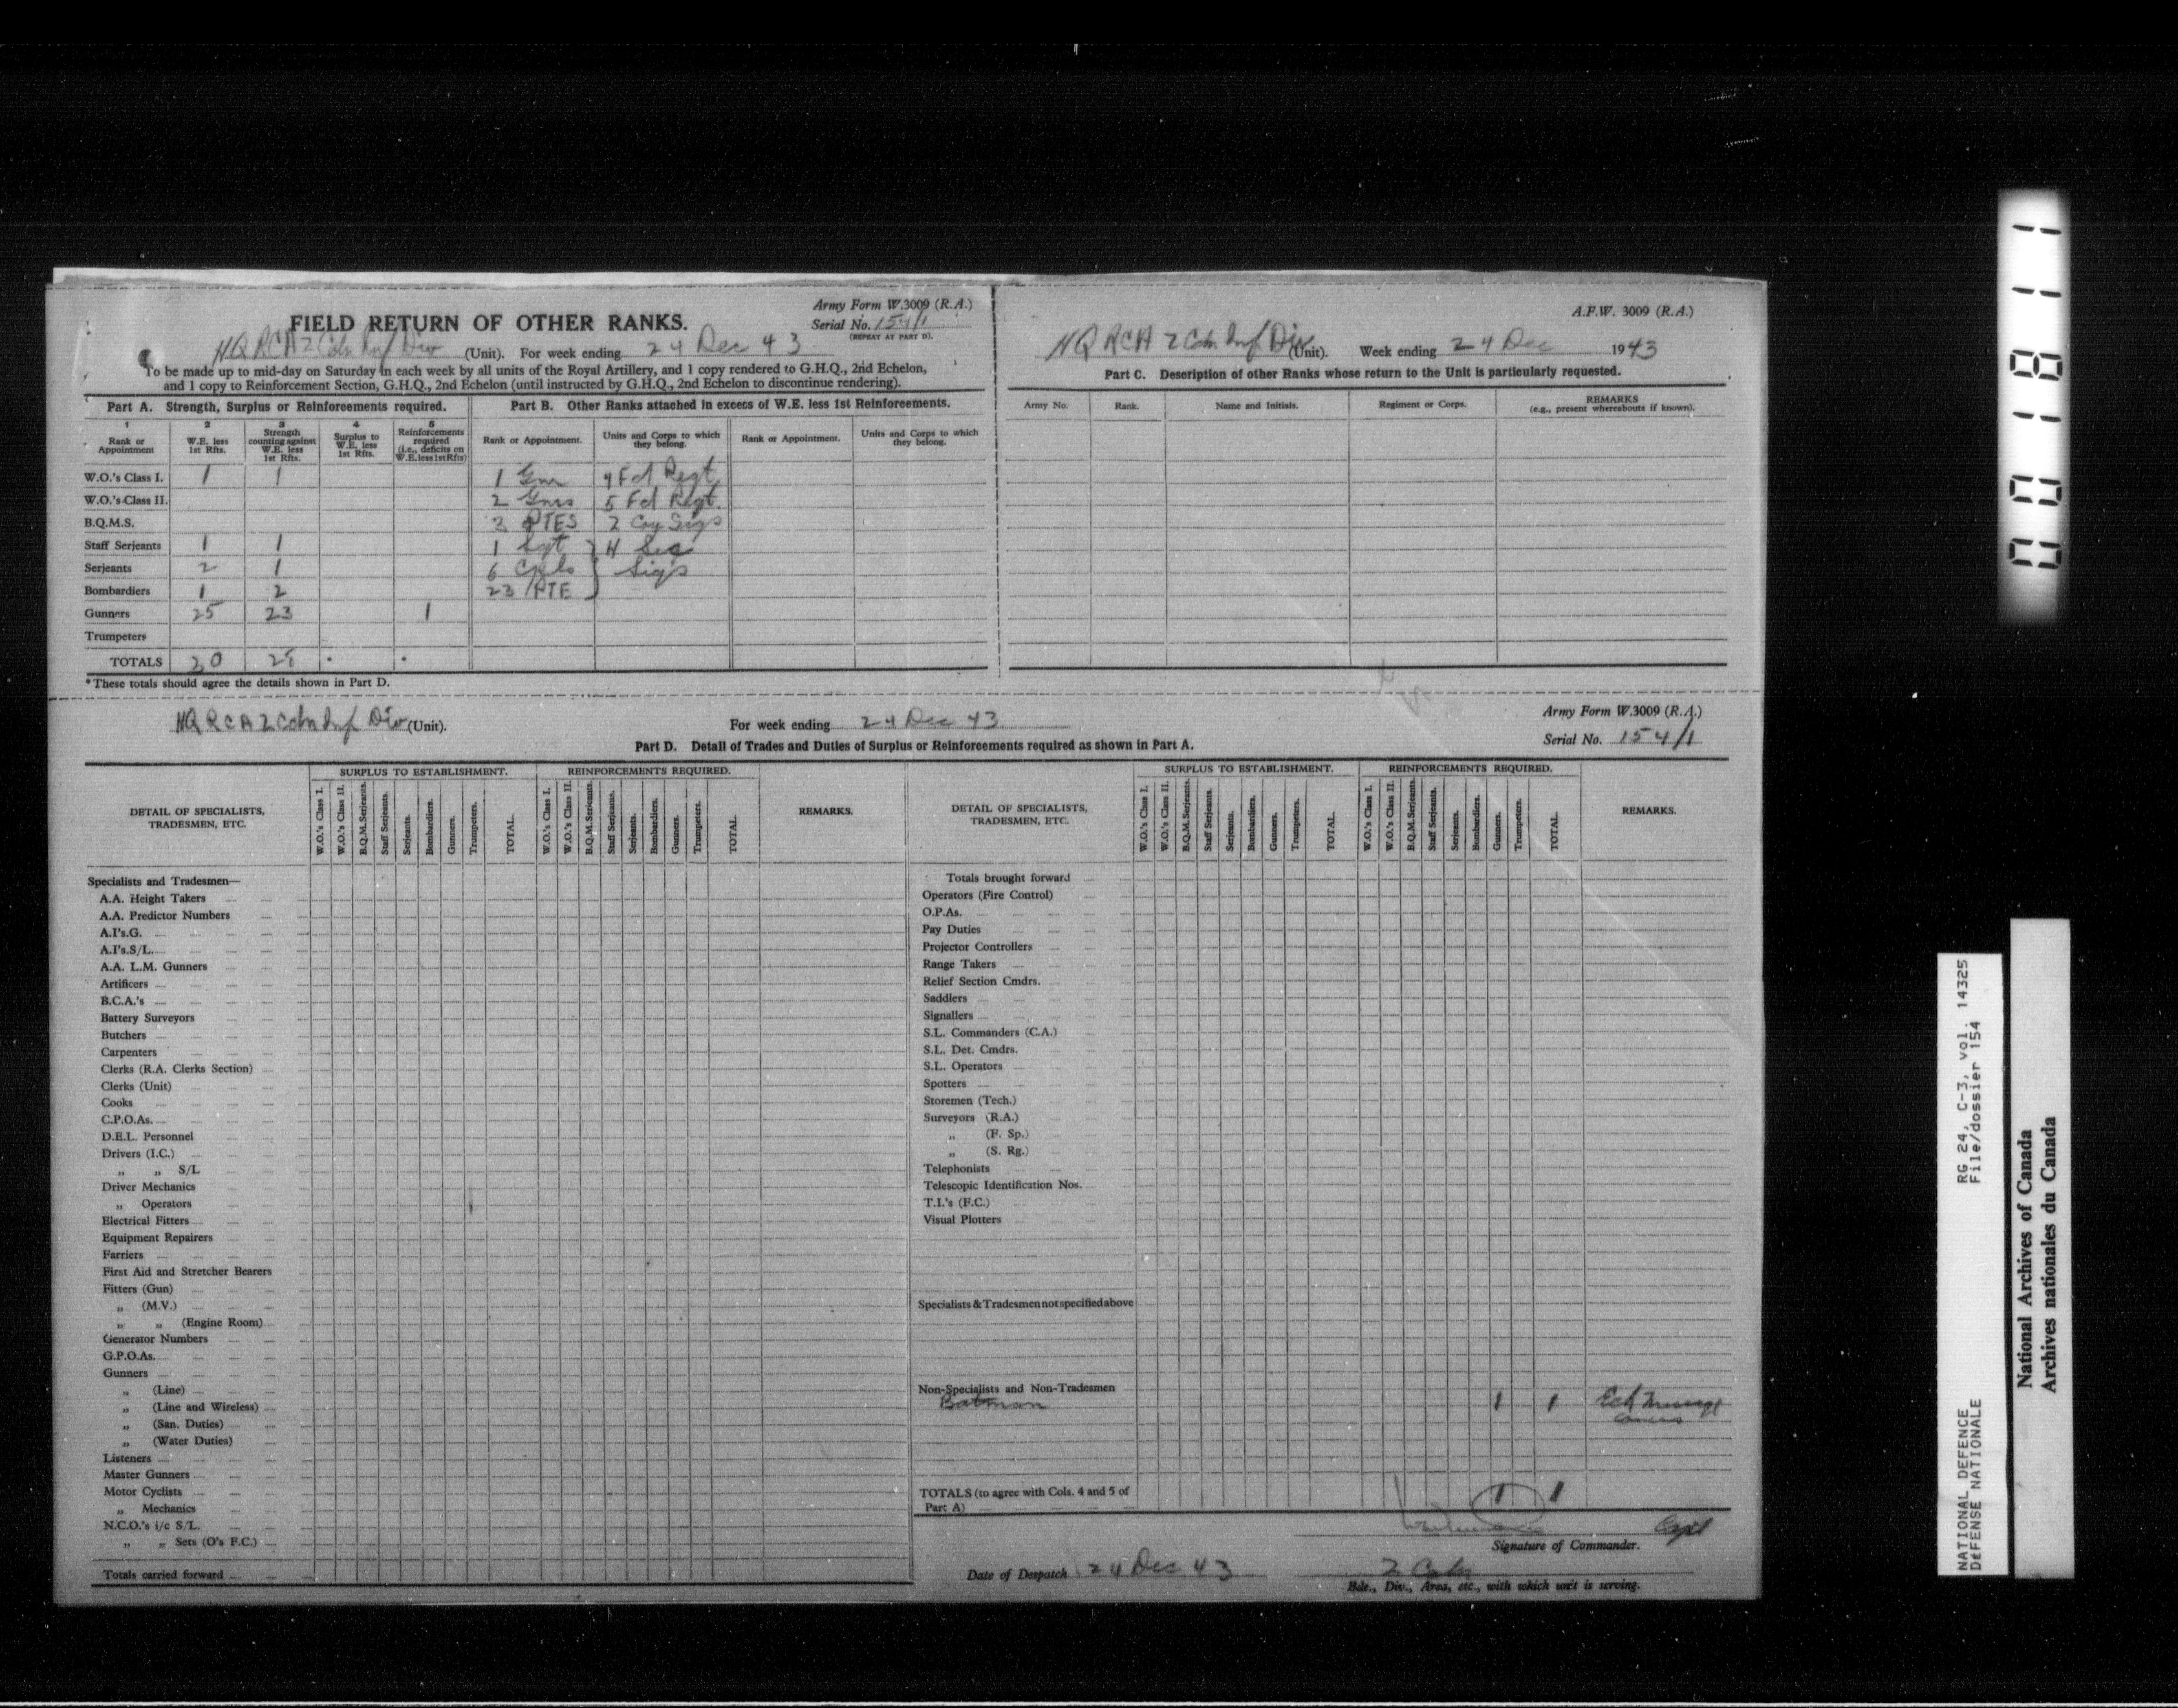 Army Form W.3009 (R.A.)
FIELD RETURN OF OTHER RANKS.
Serial No. 154/1
(REPEAT AT PART D).
HQ RCA 2 Cdn Inf Div (Unit). For week ending 24 Dec 43
To be made up to mid-day on Saturday in each week by all units of the Royal Artillery, and 1 copy rendered to G.H.Q., 2nd Echelon,
and 1 copy to Reinforcement Section, G.H.Q., 2nd Echelon (until instructed by G.H.Q., 2nd Echelon to discontinue rendering).
Part A. Strength, Surplus or Reinforcements required.
1 2 3 4 5
Rank or Appointment
W.E. less 1st Rfts.
Strength counting against W.E. less 1st Rfts.
Surplus to W.E. less 1st Rfts.
Reinforcements required (i.e., deficits on W.E. less 1st Rfts)
W.O.'s Class I. 1 1
W.O.'s Class II.
B.Q.M.S.
Staff Serjeants 1 1
Serjeants 2 1
Bombardiers 1 2
Gunners 25 23 1
Trumpeters
TOTALS 30 28 * *
* These totals should agree the details shown in Part D.
Part B. Other Ranks attached in excess of W.E. less 1st Reinforcements.
Rank or Appointment. Units and Corps to which they belong. Rank or Appointment. Units and Corps to which they belong.
1 Gnr 4 Fd Regt
2 Gnrs 5 Fd Regt.
3 PTES 2 Coy Sigs
1 Sgt } H Sec
6 Cpls } Sigs
23 PTE }
A.F.W. 3009 (R.A.)
HQ RCA 2 Cdn Inf Div (Unit). Week ending 24 Dec 1943
Part C. Description of other Ranks whose return to the Unit is particularly requested.
Army No. Rank. Name and Initials. Regiment or Corps. REMARKS
(e.g., present whereabouts if known).
HQ RCA 2 Cdn Inf Div (Unit). For week ending 24 Dec 43
Army Form W.3009 (R.A.)
Serial No. 154/1
Part D. Detail of Trades and Duties of Surplus or Reinforcements required as shown in Part A.
DETAIL OF SPECIALISTS, TRADESMEN, ETC.
SURPLUS TO ESTABLISHMENT.
W.O.'s Class I. W.O.'s Class II. B.Q.M. Serjeants. Staff Serjeants. Serjeants. Bombardiers. Gunners. Trumpeters. TOTAL.
REINFORCEMENTS REQUIRED.
W.O.'s Class I. W.O.'s Class II. B.Q.M. Serjeants. Staff Serjeants. Serjeants. Bombardiers. Gunners. Trumpeters. TOTAL.
REMARKS.
Specialists and Tradesmen—
A.A. Height Takers
A.A. Predictor Numbers
A.I's.G.
A.I's.S/L.
A.A. L.M. Gunners
Artificers
B.C.A.'s
Battery Surveyors
Butchers
Carpenters
Clerks (R.A. Clerks Section)
Clerks (Unit)
Cooks
C.P.O.As.
D.E.L. Personnel
Drivers (I.C.)
„ „ S/L
Driver Mechanics
„ Operators
Electrical Fitters
Equipment Repairers
Farriers
First Aid and Stretcher Bearers
Fitters (Gun)
„ (M.V.)
„ „ (Engine Room)
Generator Numbers
G.P.O.As.
Gunners
„ (Line)
„ (Line and Wireless)
„ (San. Duties)
„ (Water Duties)
Listeners
Master Gunners
Motor Cyclists
„ Mechanics
N.C.O.'s i/c S/L.
„ „ Sets (O's F.C.)
Totals carried forward
DETAIL OF SPECIALISTS, TRADESMEN, ETC.
SURPLUS TO ESTABLISHMENT.
W.O.'s Class I. W.O.'s Class II. B.Q.M. Serjeants. Staff Serjeants. Serjeants. Bombardiers. Gunners. Trumpeters. TOTAL.
REINFORCEMENTS REQUIRED.
W.O.'s Class I. W.O.'s Class II. B.Q.M. Serjeants. Staff Serjeants. Serjeants. Bombardiers. Gunners. Trumpeters. TOTAL.
REMARKS.
Totals brought forward
Operators (Fire Control)
O.P.As.
Pay Duties
Projector Controllers
Range Takers
Relief Section Cmdrs.
Saddlers
Signallers
S.L. Commanders (C.A.)
S.L. Det. Cmdrs.
S.L. Operators
Spotters
Storemen (Tech.)
Surveyors (R.A.)
„ (F. Sp.)
„ (S. Rg.)
Telephonists
Telescopic Identification Nos.
T.I.'s (F.C.)
Visual Plotters
Specialists & Tradesmen not specified above
Non-Specialists and Non-Tradesmen
Batman 1 1
TOTALS (to agree with Cols. 4 and 5 of Part A) 1 1
Capt
Signature of Commander.
Date of Despatch 24 Dec 43
2 Cdn
Bde., Div., Area, etc., with which unit is serving.
RG 24, C-3, vol. 14325
File/dossier 154
NATIONAL DEFENCE
DÉFENSE NATIONALE
National Archives of Canada
Archives nationales du Canada